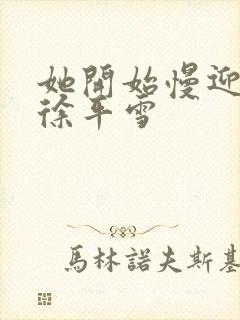 她開始慢迎
徐平雪
馬林諾夫斯基